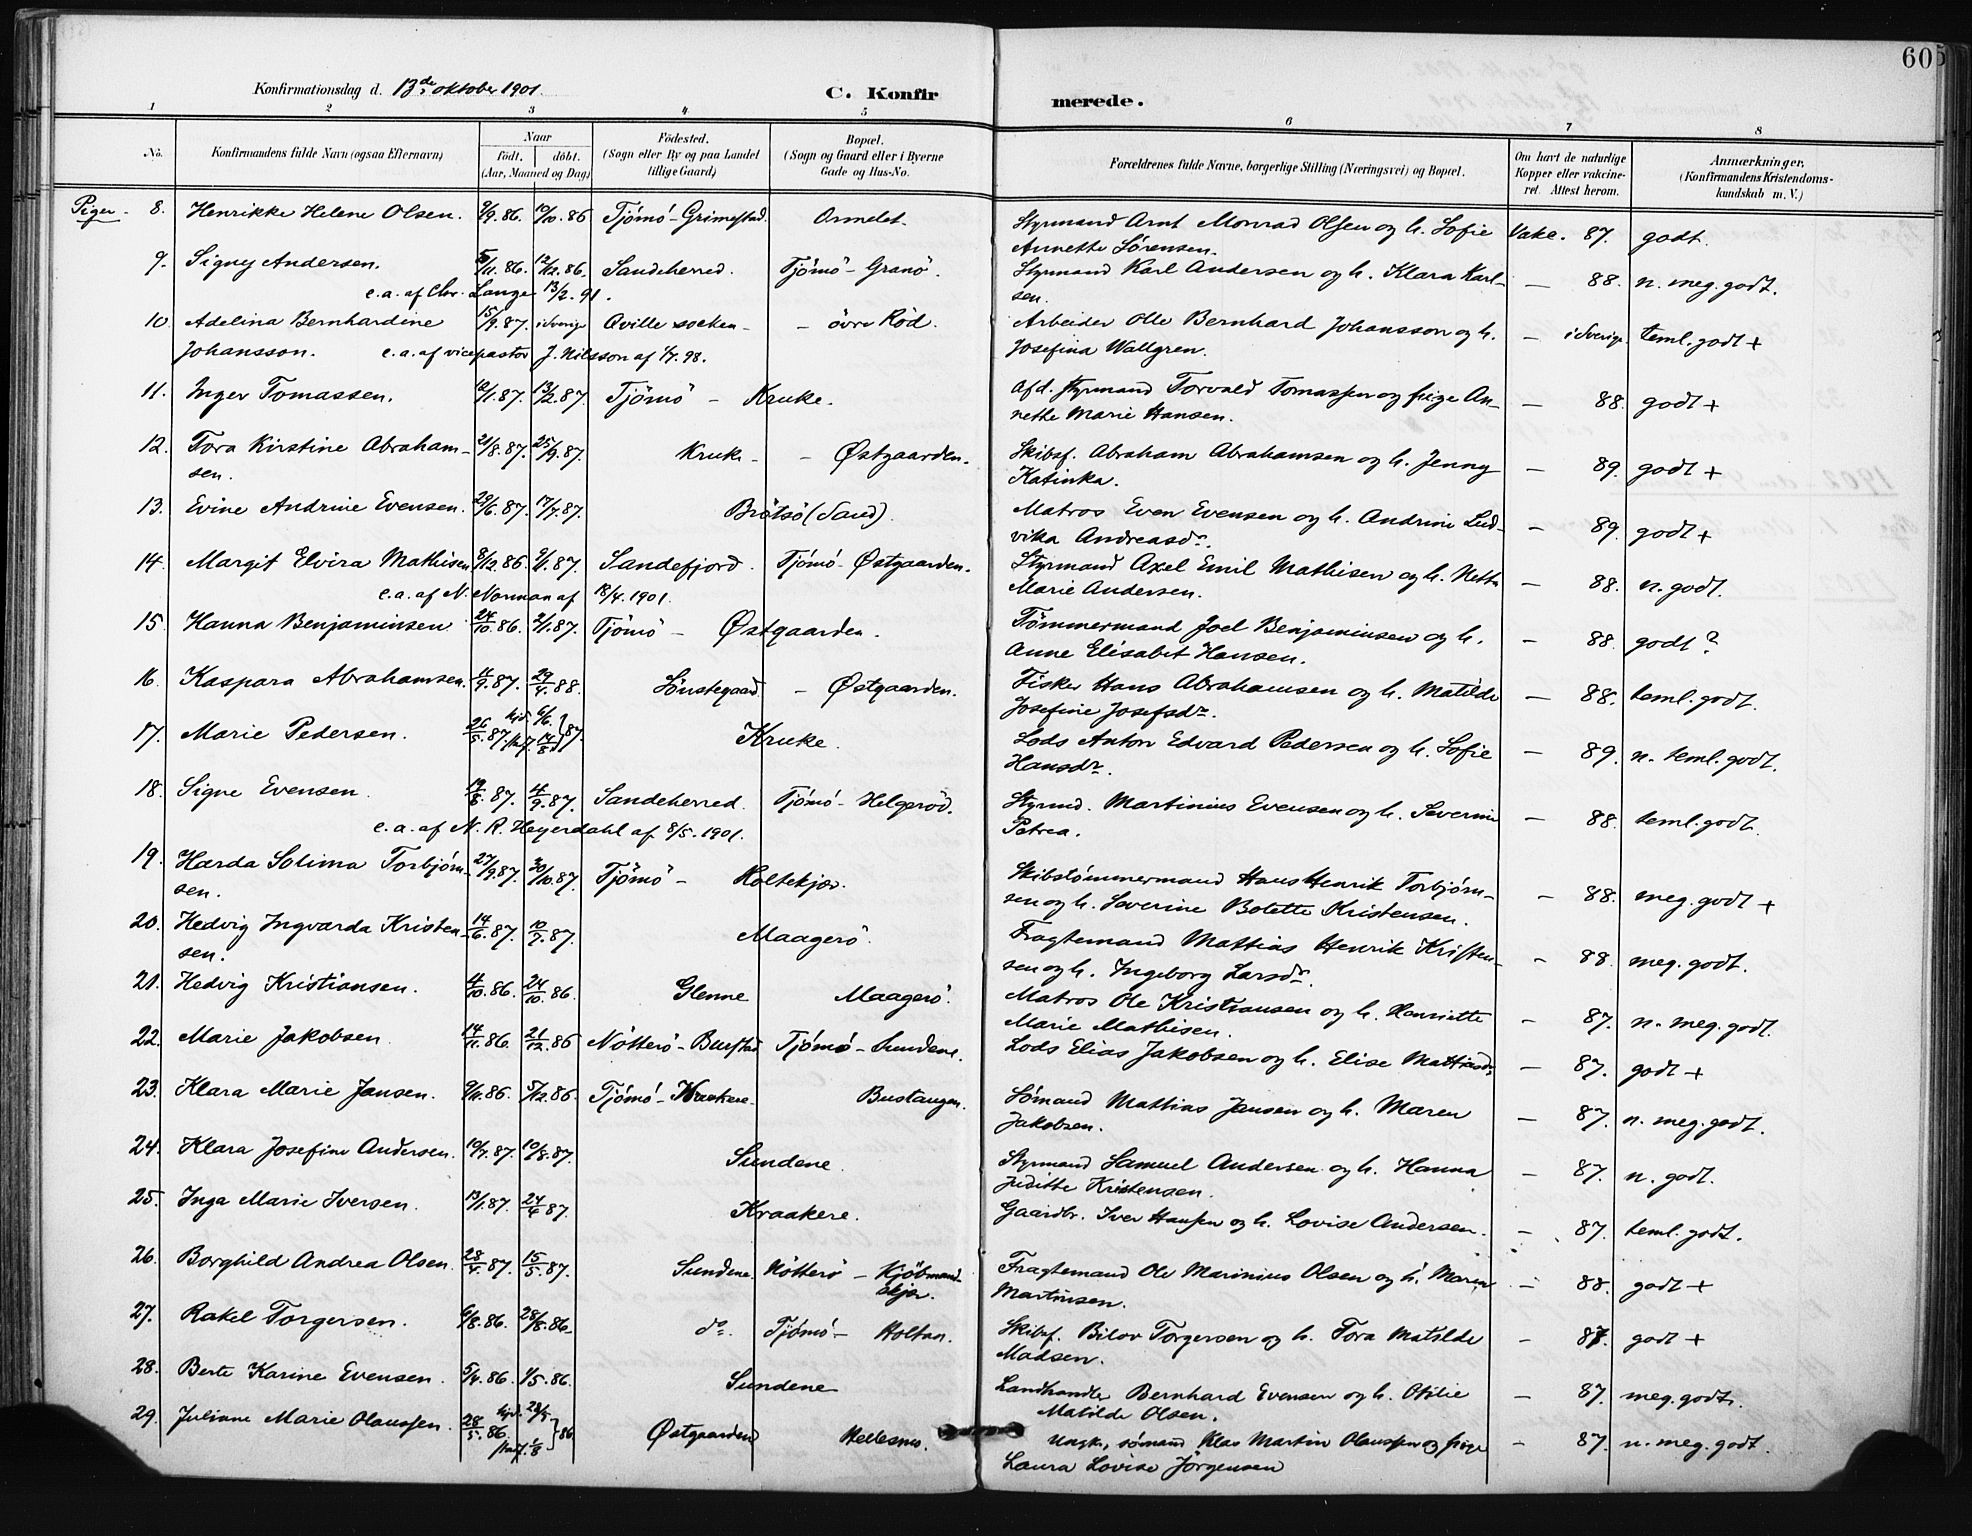 605
Konfirmationsdag d. 13de oktober 1901. C. Konfirmerede.
1 2 3 4 5 6 7 8
No. Konfirmandens fulde Navn (ogsaa Efternavn) Naar födt. döbt. (Aar, Maaned og Dag) Födested. (Sogn eller By og paa Landet tillige Gaard) Bopæl. (Sogn og Gaard eller i Byerne Gade og Hus-No. Forældrenes fulde Navne, borgerlige Stilling (Næringsvei) og Bopæl. Om havt de naturlige Kopper eller vakcineret. Attest herom. Anmærkninger, (Konfirmandens Kristendomskundskab m. V.)
Piger. 8. Henrikke Helene Olsen. 9/9.86. 10/10.86 Tjömö - Grimestad. Ormelet. Styrmand Arnt Monrad Olsen og h. Sofie Vakc. 87. godt.
Annette Sörensen.
9. Signy Andersen. 5/11.86. 12/12.86. Sandeherred. Tjömö - Granö. Styrmand Karl Andersen og h. Klara Karl- — 88. n. meg. godt.
e.a. af Chr. Lange 13/2.91. sen.
10. Adelina Bernhardine 15/9.87. i Sverige Qville socken - - övre Röd. Arbeider Olle Bernhard Johansson og h. — i Sverige. teml. godt +
Johansson. e.a. af vicepastor J. Nilsson af 1/7.98. Josefina Wallgren.
11. Inger Tomassen. 12/1.87. 13/2.87. Tjömö - Kruke. Afd. styrmand Torvald Tomassen og pige An- — 88. godt +
nette Marie Hansen.
12. Tora Kirstine Abraham- 21/8.87. 25/9.87. Kruke - - Østgaarden. Skibsf. Abraham Abrahamsen og h. Jenny — 89. godt +
sen. Katinka.
13. Evine Andrine Evensen. 29/6.87. 17/7.87. Brötsö (Sand). Matros Even Evensen og h. Andrine Lud- — 89. godt +
vika Andreasdr.
14. Margit Elvira Mathisen 8/12.86 9/1.87. Sandefjord. Tjömö - Østgaarden. Styrmand Axel Emil Mathisen og h. Netta — 88. n. godt.
e.a. af N. Norman af 18/4.1901. Marie Andersen.
15. Hanna Benjaminsen 24/10.86. 2/1.87. Tjömö - Østgaarden. Tömmermand Joel Benjaminsen og h. — 88. godt?
Anne Elisabet Hansen.
16. Kaspara Abrahamsen. 4/9.87. 29/4.88. Sönstegaard. - Østgaarden. Fisker Hans Abrahamsen og h. Matilde — 88. teml. godt.
Josefine Josefsdr.
17. Marie Pedersen. 26/5.87. hjd. 6/6. stadf. 14/8 } 87. Kruke. Lods Anton Edvard Pedersen og h. Sofie — 89. n. teml. godt.
Hansdr.
18. Signe Evensen. 19/8.87. 4/9.87. Sandeherred. Tjömö - Helgeröd. Styrmd. Martinius Evensen og h. Severine — 88. teml. godt.
e.a. af N. R. Heyerdahl af 8/5.1901. Petrea.
19. Harda Solima Torbjörn- 27/9.87. 30/10.87. Tjömö - Holtekjær. Skibstömmermand Hans Henrik Torbjörn- - 88. meg. godt +
sen. sen og h. Severine Bolette Kristensen.
20. Hedvig Ingvarda Kristen- 14/6.87. 10/7.87. Maagerö. Fragtemand Mattias Henrik Kristen- - 88. meg. godt.
sen. sen og h. Ingeborg Larsdr.
21. Hedvig Kristiansen. 4/10.86. 24/10.86. Glenne Maagerö. Matros Ole Kristiansen og h. Henriette - 87. n. meg. godt.
Marie Mathisen.
22. Marie Jakobsen 14/11.86. 21/12.86 Nötterö - Burstad Tjömö - Sundene. Lods Elias Jakobsen og h. Elise Mattiasdr. - 87. godt +
23. Klara Marie Jansen. 9/11.86. 5/12.86. Tjömö - Kraakere. Bustangen. Sömand Mattias Jansen og h. Maren - 87. n. meg. godt.
Jakobsen.
24. Klara Josefine Andersen. 10/7.87. 10/8.87. Sundene. Styrmand Samuel Andersen og h. Hanna - 87. n. godt.
Juditte Kristensen.
25. Inga Marie Iversen. 13/1.87. 24/4.87. Kraakere. Gaardbr. Iver Hansen og h. Lovise Andersen. - 87. teml. godt.
26. Borghild Andrea Olsen. 28/4.87. 15/5.87. Sundene. Nötterö - Kjöbmand- Fragtemand Ole Marinius Olsen og h. Maren - 88. godt +
skjær. Martinsen.
27. Rakel Torgersen. 6/8.86. 28/8.86. do. Tjömö - Holtan. Skibsf. Bilov Torgersen og h. Tora Matilde - 87. godt +
Madsen.
28. Berte Karine Evensen. 5/4.86. 1/5.86. Sundene Landhandle Bernhard Evensen og h. Otilie - 87. meg. godt.
Matilde Olsen.
29. Juliane Marie Olaussen. 28/5.86. hjd. 28/5 stadf. 1/8 } 86 Østgaarden Hellesmo. Ungk., sömand Klas Martin Olaussen og pige - 87. n. meg. godt.
Laura Lovise Jörgensen